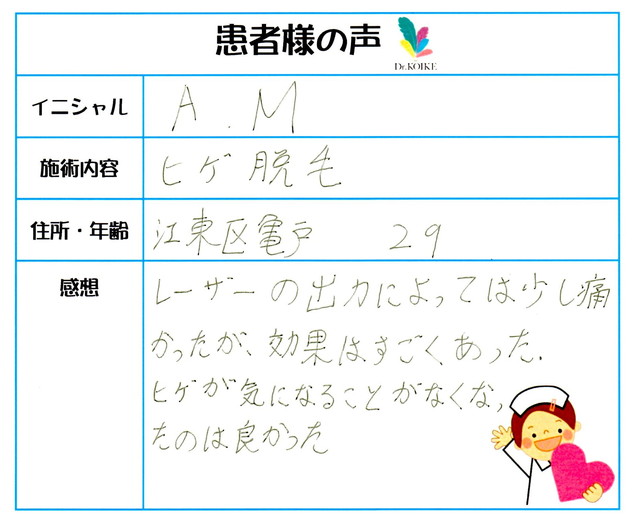 患者様の声
Dr.KOIKE
イニシャル A.M
施術内容 ヒゲ脱毛
住所・年齢 江東区亀戸 29
感想 レーザーの出力によっては少し痛
かったが、効果はすごくあった.
ヒゲが気になることがなくなっ
たのは良かった